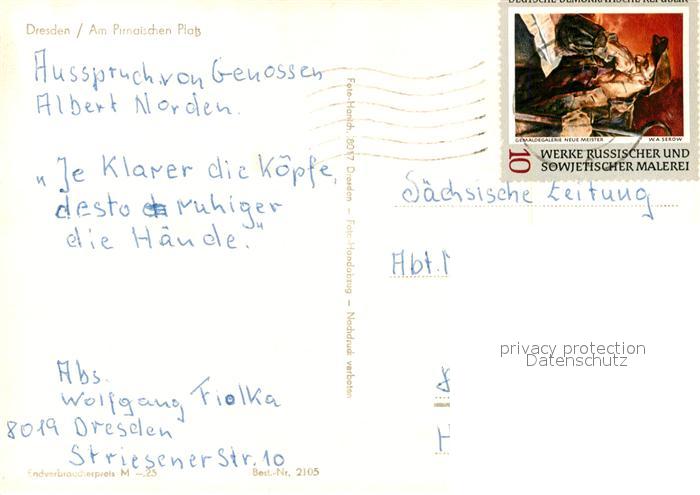 Dresden / Am Pirnaischen Platz
Ausspruch von Genossen
Albert Norden.
"Je Klarer die Köpfe,
desto ruhiger
die Hände."
Abs.
Wolfgang Fiolka
8019 Dresden
Striesener Str. 10
Endverbraucherpreis M –.25
Best.-Nr. 2105
Foto-Hanich, 8017 Dresden – Foto-Handabzug – Nachdruck verboten
DEUTSCHE DEMOKRATISCHE REPUBLIK
GEMÄLDEGALERIE NEUE MEISTER W.A. SEROW
10 WERKE RUSSISCHER UND
SOWJETISCHER MALEREI
Sächsische Zeitung
Abt.
privacy protection
Datenschutz
H